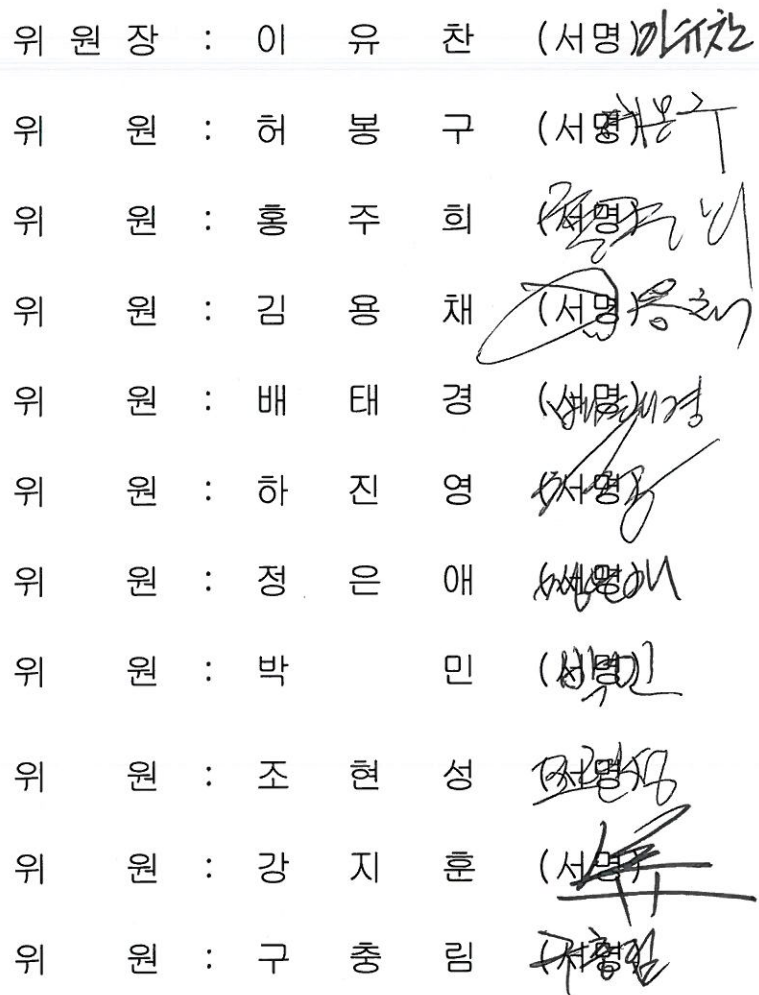 위 원 장 : 이 유 찬 (서명) 이유찬
위 원 : 허 봉 구 (서명) 허봉구
위 원 : 홍 주 희 (서명)
위 원 : 김 용 채 (서명) 김용채
위 원 : 배 태 경 (서명) 배태경
위 원 : 하 진 영 (서명)
위 원 : 정 은 애 (서명) 정은애
위 원 : 박 민 (서명) 박민
위 원 : 조 현 성 (서명) 조현성
위 원 : 강 지 훈 (서명)
위 원 : 구 충 림 (서명) 구충림